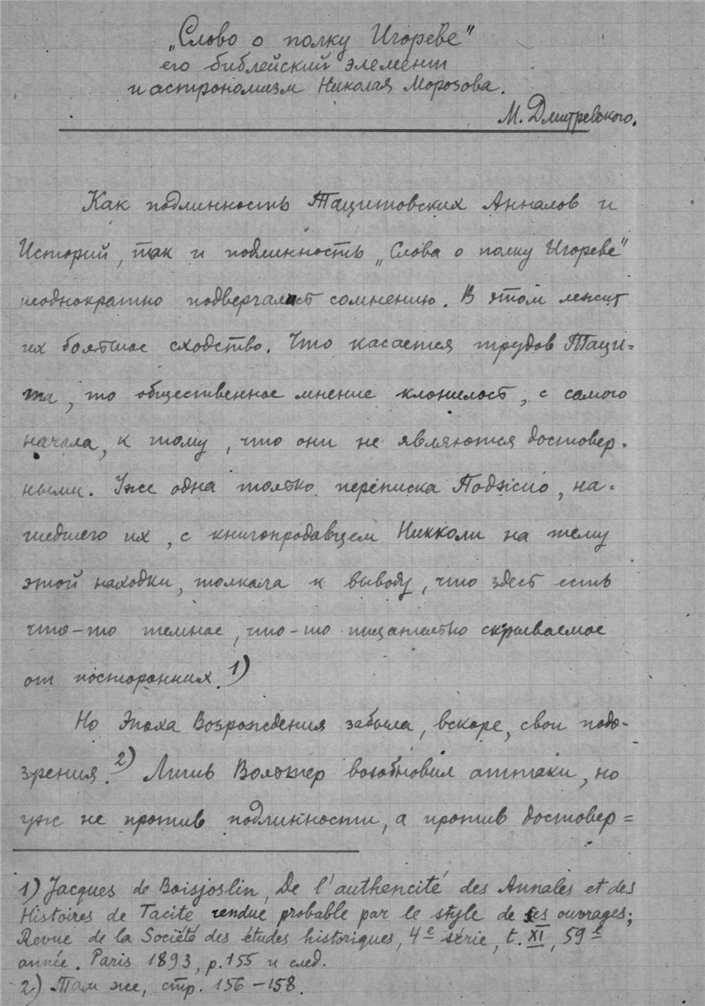 „Слово о полку Игореве"
его библейский элемент
и астрономизм Николая Морозова.
М. Дмитревского.
Как подлинность Тацитовских Анналов и
Историй, так и подлинность „Слова о полку Игореве"
неоднократно подвергалист сомнению. В этом лежит
их болтшое сходство. Что касается трудов Таци=
та, то общественное мнение клонилост, с самого
начала, к тому, что они не являются достовер-
ными. Уже одна толтко переписка Поджио, на-
шедшего их, с книгопродавцем Никколи на тему
этой находки, толкала к выводу, что здест есть
что-то темное, что-то тщателтно скрываемое
от посторонних. 1)
Но Эпоха Возрождения забыла, вскоре, свои подо-
зрения. 2) Лишь Волтер возобновил аттаки, но
уже не против подлинности, а против достовер=
1) Jacques de Boisjoslin, De l'authencité des Annales et des
Histoires de Tacite rendue probable par le style de ses ouvrages;
Revue de la Société des études historiques, 4e série, t. XI, 59e
année. Paris 1893, p. 155 и след.
2) Там же, стр. 156-158.